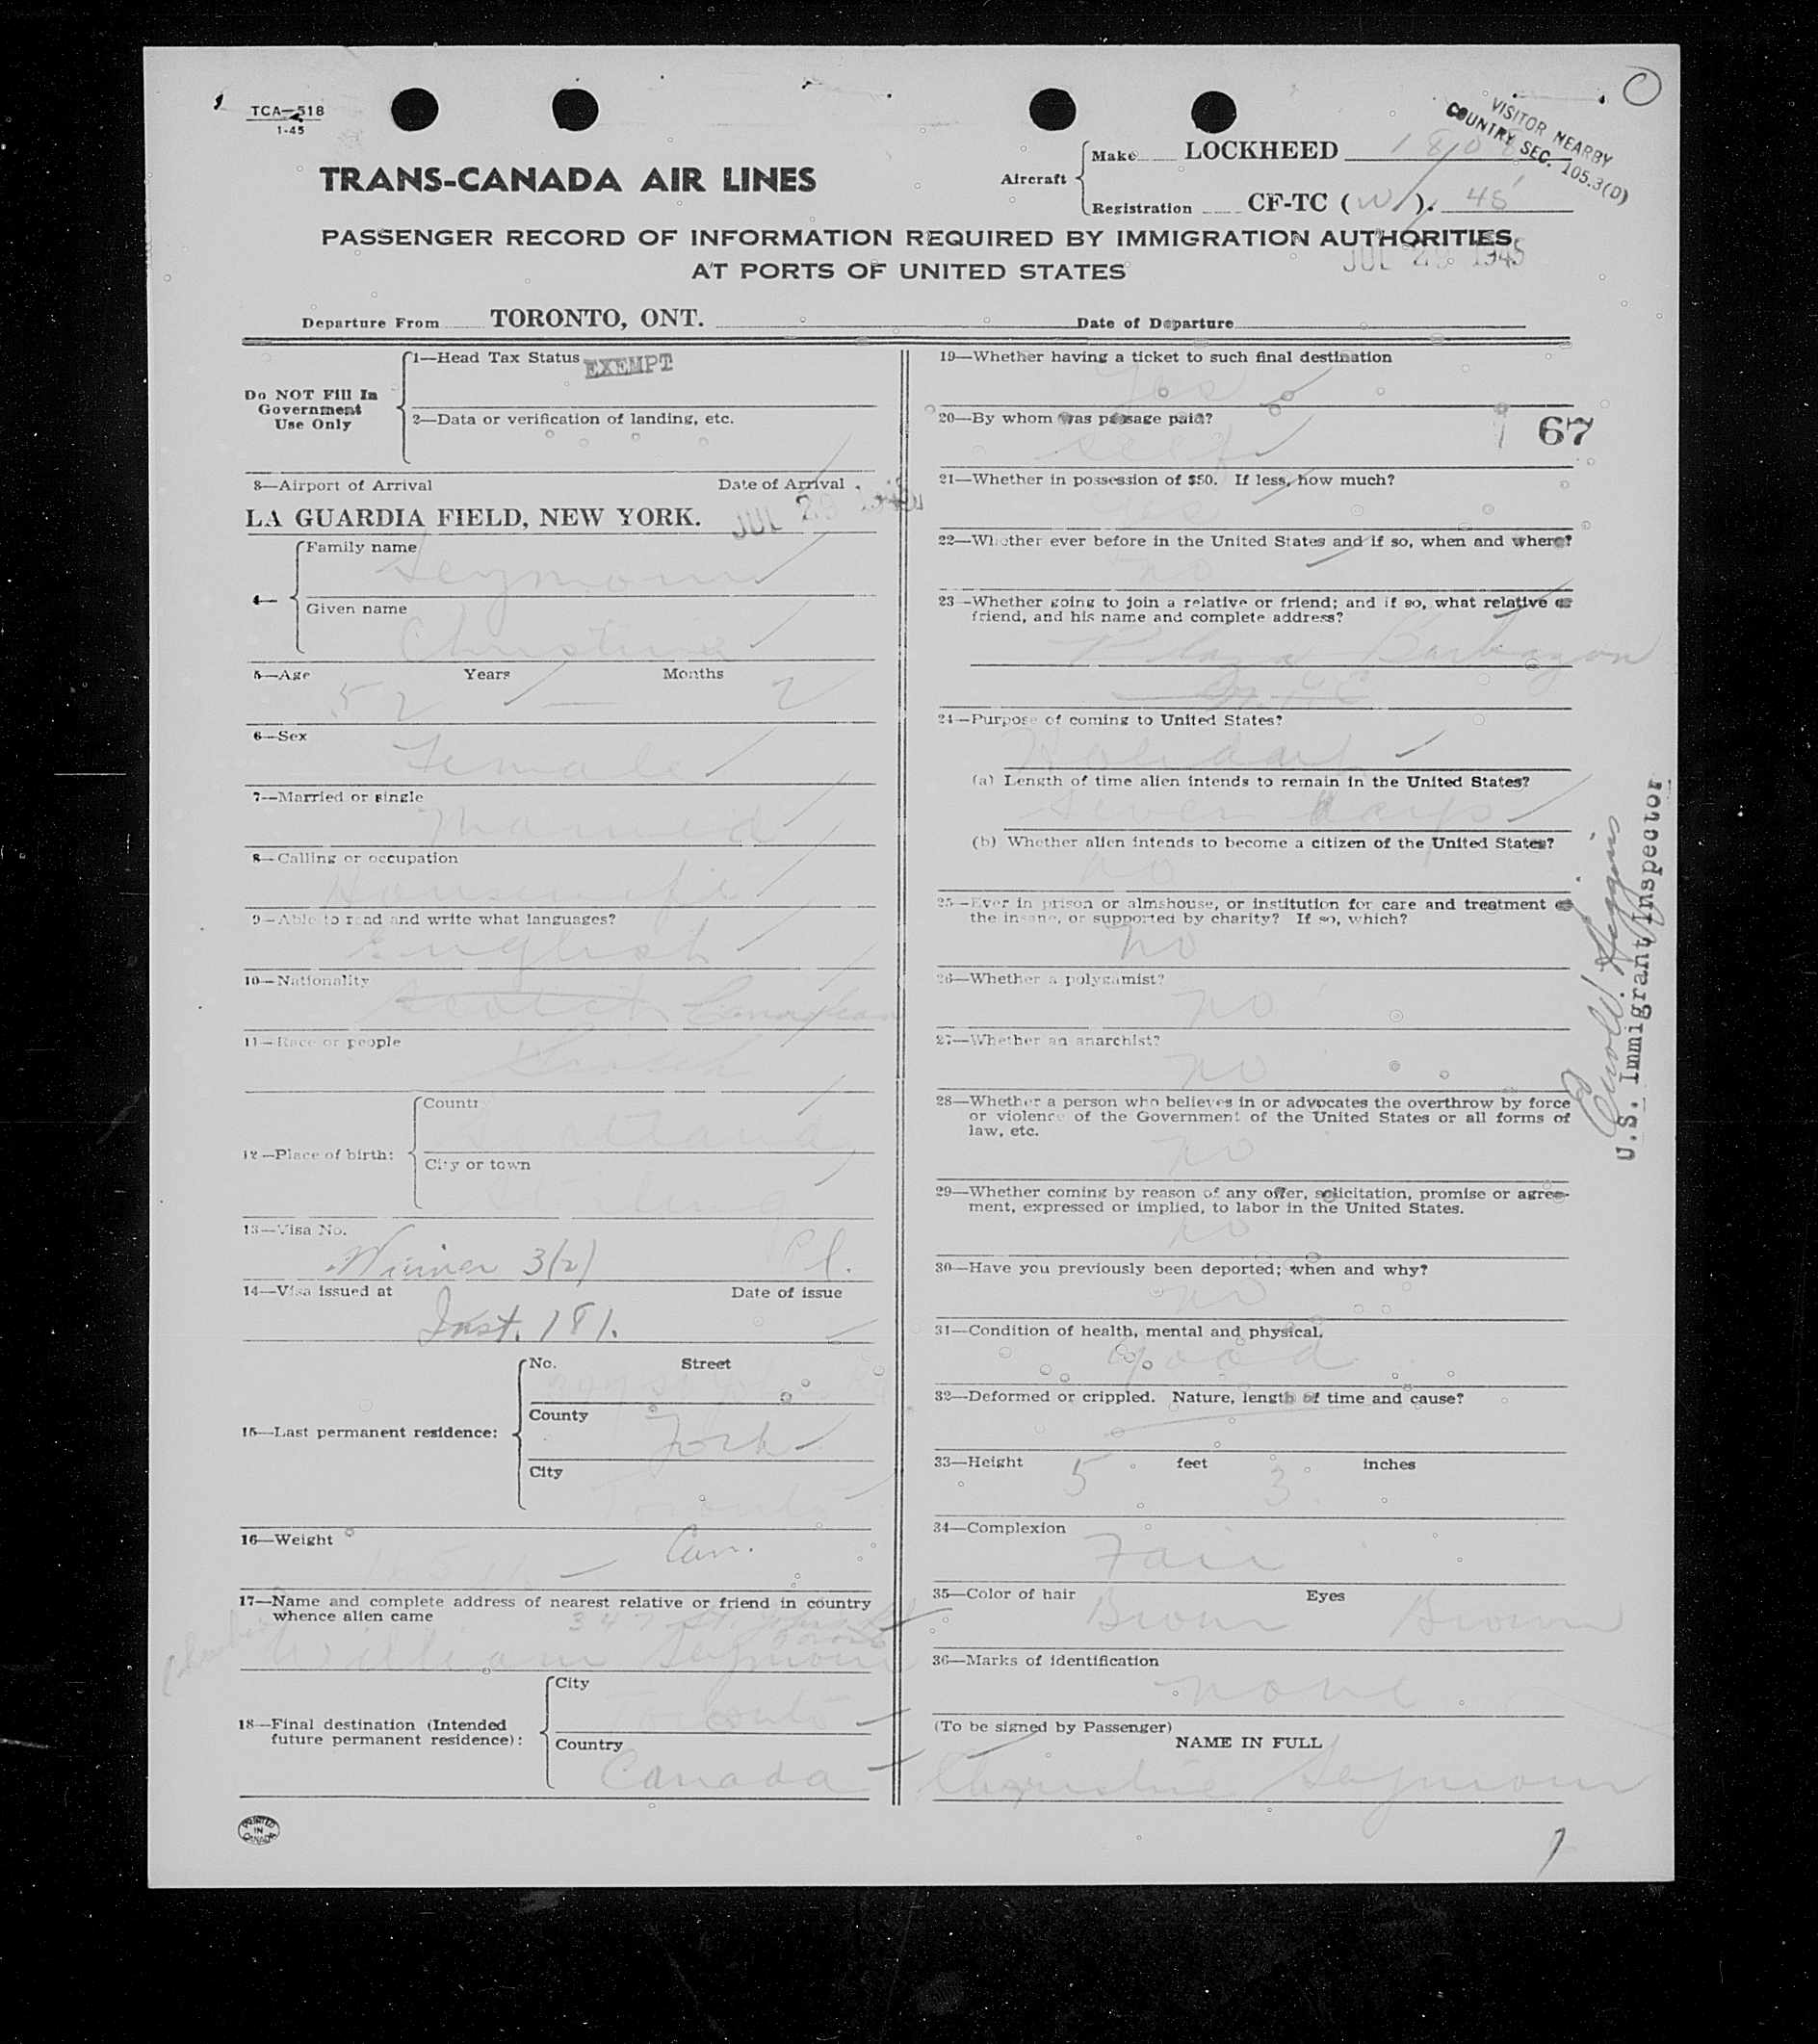 TCA—518
1-45
VISITOR NEARBY
COUNTRY SEC. 105.3(D)
TRANS-CANADA AIR LINES
Aircraft
Make LOCKHEED 1808
Registration CF-TC (W). 48
PASSENGER RECORD OF INFORMATION REQUIRED BY IMMIGRATION AUTHORITIES
AT PORTS OF UNITED STATES
JUL 29 1945
Departure From TORONTO, ONT. Date of Departure
Do NOT Fill In
Government
Use Only
1—Head Tax Status EXEMPT
2—Data or verification of landing, etc.
3—Airport of Arrival Date of Arrival
LA GUARDIA FIELD, NEW YORK. JUL 29 1945
4— Family name
Seymour
Given name
Christina
5—Age Years Months
52 2
6—Sex
Female
7—Married or single
Married
8—Calling or occupation
Housewife
9—Able to read and write what languages?
English
10—Nationality
Scotch Canadian
11—Race or people
Scotch
12—Place of birth:
Country
Scotland
City or town
Stirling
13—Visa No.
Waiver 3(2) Pl.
14—Visa issued at Date of issue
Inst. 181.
15—Last permanent residence:
No. Street
County
York
City
Toronto
16—Weight
Can.
17—Name and complete address of nearest relative or friend in country
whence alien came
347 St. Johns Rd
Toronto
(husband) William Seymour
18—Final destination (Intended
future permanent residence):
City
Toronto
Country
Canada
PRINTED
IN
CANADA
19—Whether having a ticket to such final destination
Yes
20—By whom was passage paid?
self
67
21—Whether in possession of $50. If less, how much?
yes
22—Whether ever before in the United States and if so, when and where?
no
23—Whether going to join a relative or friend; and if so, what relative or
friend, and his name and complete address?
Plaza Barbazon
N.Y.C
24—Purpose of coming to United States?
Holiday
(a) Length of time alien intends to remain in the United States?
Seven days
(b) Whether alien intends to become a citizen of the United States?
no
25—Ever in prison or almshouse, or institution for care and treatment of
the insane, or supported by charity? If so, which?
no
26—Whether a polygamist?
no
27—Whether an anarchist?
no
28—Whether a person who believes in or advocates the overthrow by force
or violence of the Government of the United States or all forms of
law, etc.
no
29—Whether coming by reason of any offer, solicitation, promise or agree-
ment, expressed or implied, to labor in the United States.
no
30—Have you previously been deported; when and why?
no
31—Condition of health, mental and physical.
good
32—Deformed or crippled. Nature, length of time and cause?
33—Height 5 feet 3 inches
34—Complexion
Fair
35—Color of hair Eyes
Brown Brown
36—Marks of identification
none
(To be signed by Passenger)
NAME IN FULL
Christine Seymour
U.S. Immigrant Inspector